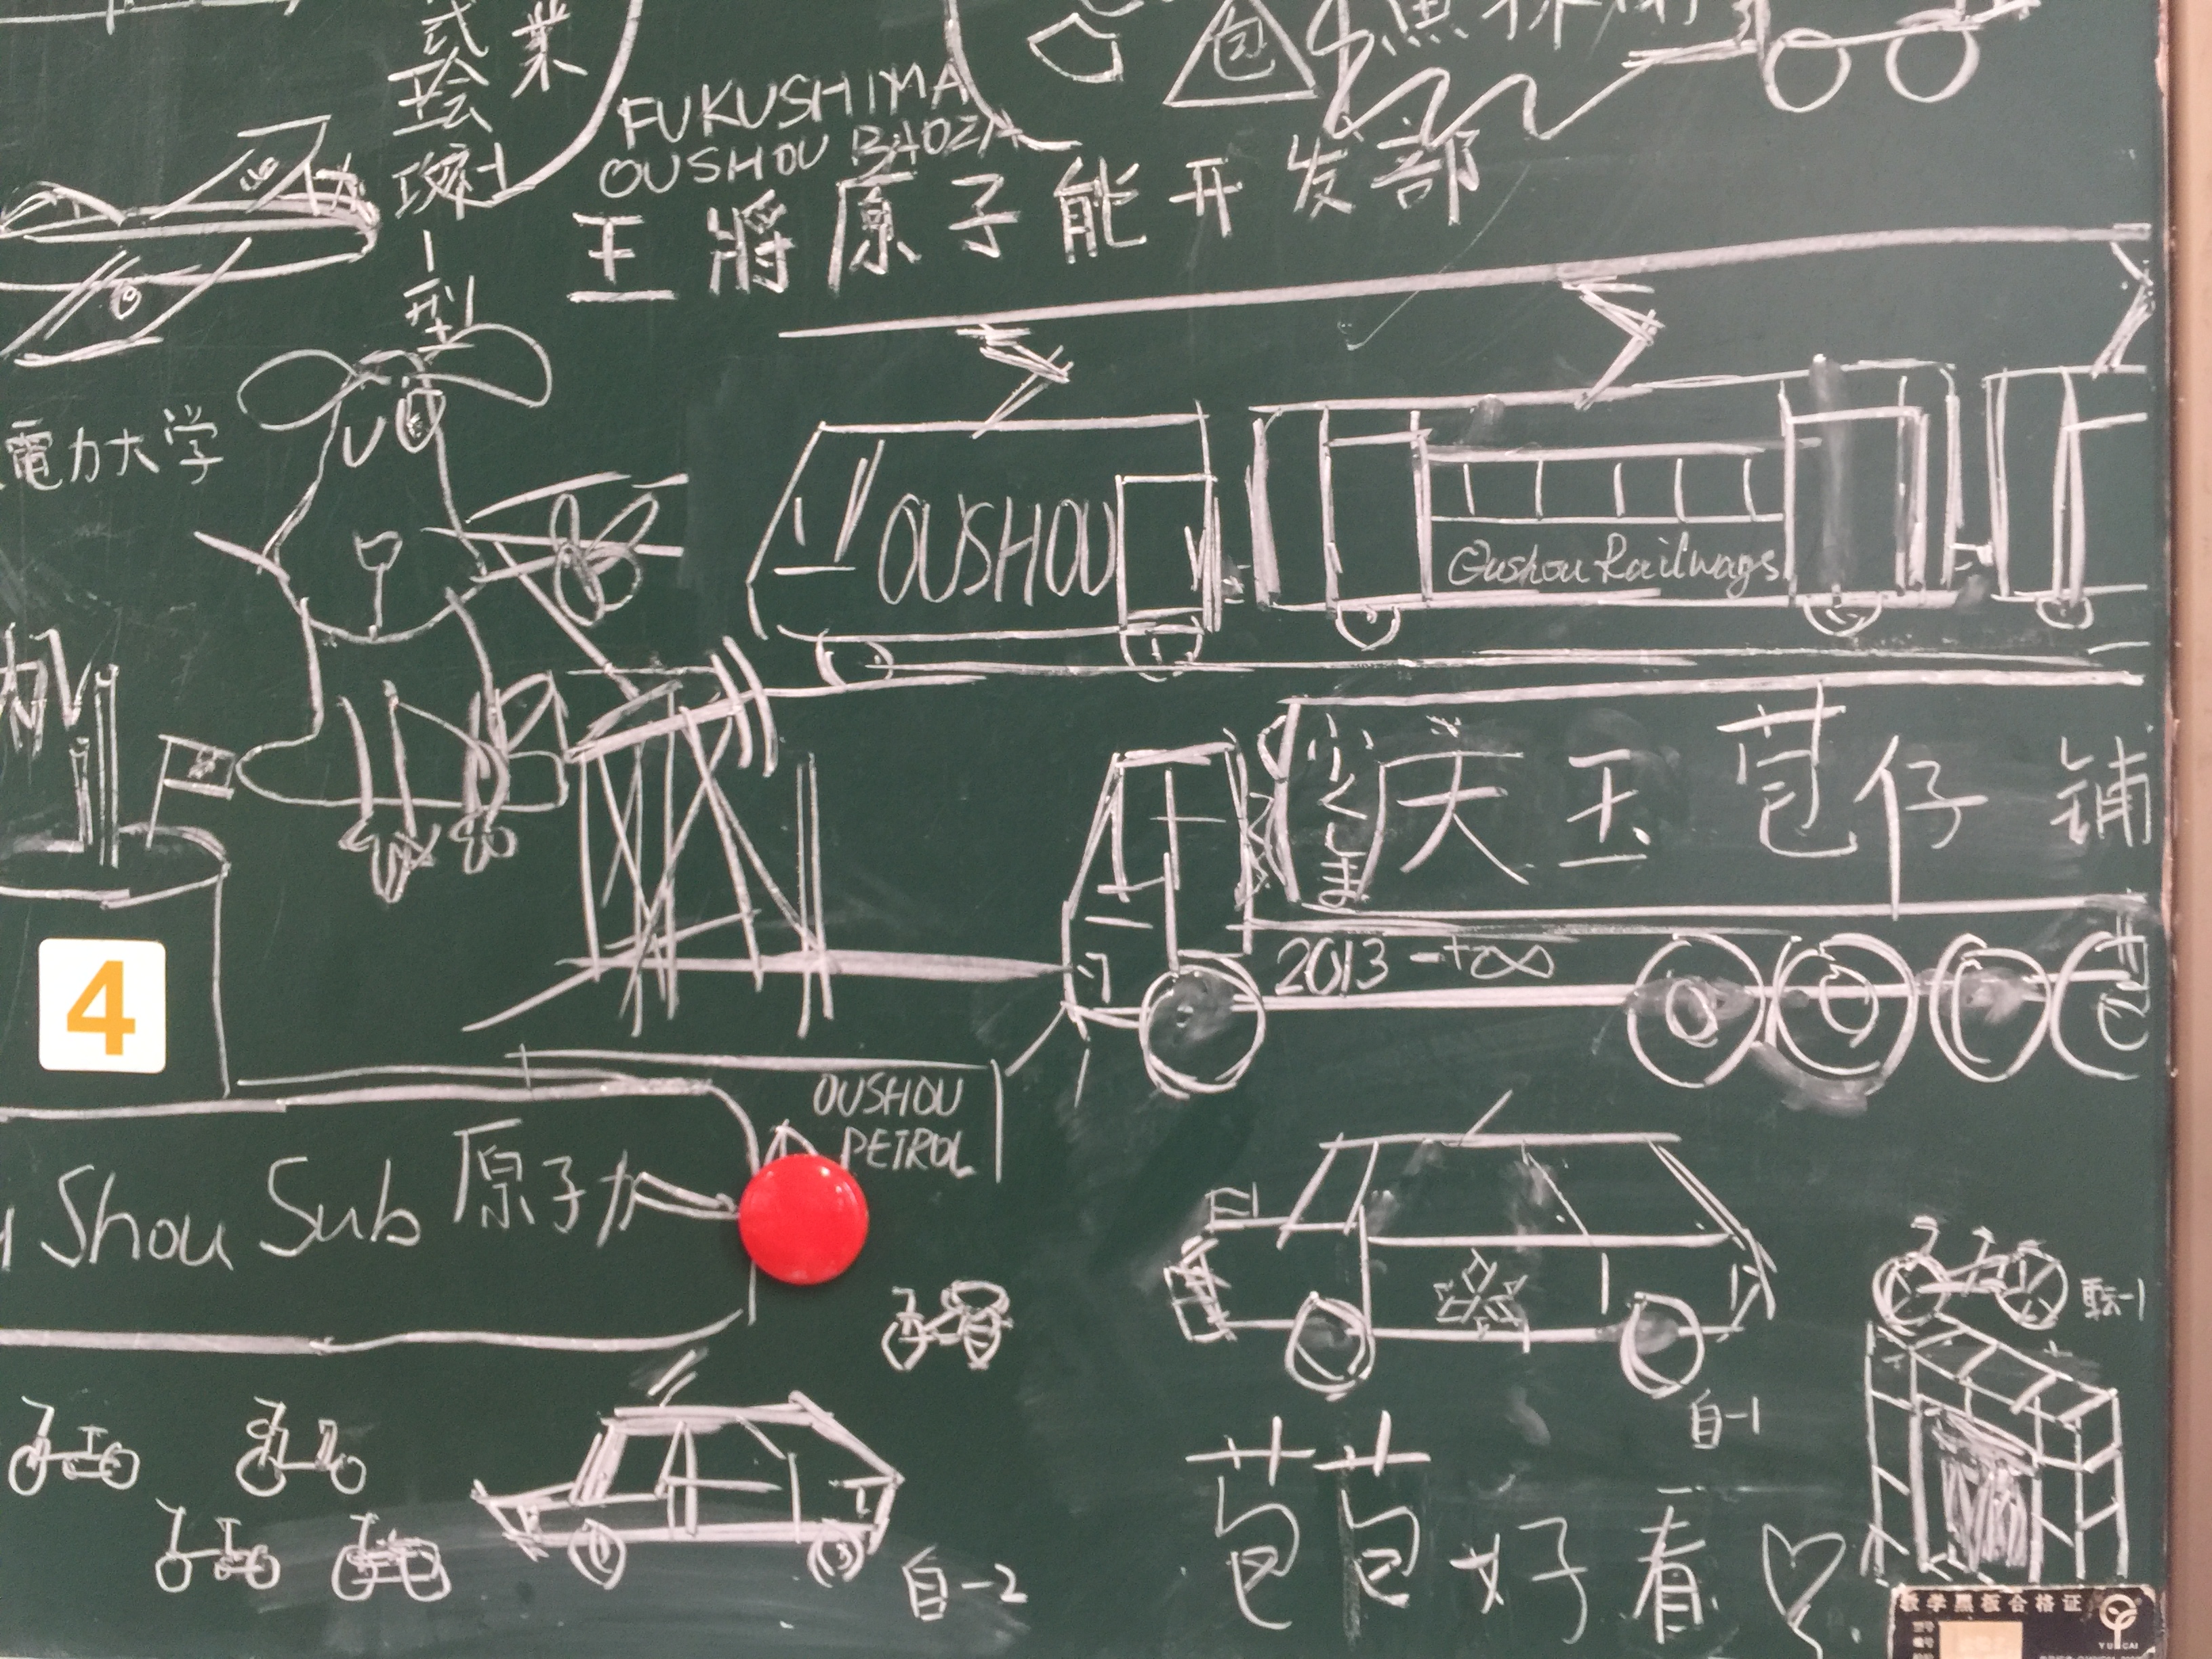 業
絵
1
型
包
FUKUSHIMA
OUSHOU BAOZA
王将原子能开发部
電力大学
OUSHOU
Oushou Railways
天王苞仔铺
2013-+∞
4
OUSHOU
PETROL
Shou Sub 原子力
転-1
自-1
自-2
苞苞好看
教学黑板合格证
YUCAI